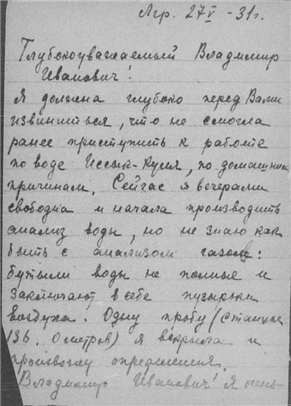 Лгр. 27 V - 31 г.
Глубокоуважаемый Владимир
Иванович!
Я должна глубоко перед Вами
извиниться, что не смогла
ранее приступить к работе
по воде Иссык-Куля, по домашним
причинам. Сейчас я вечерами
свободна и начала производить
анализ воды, но не знаю как
быть с анализом газов:
бутыли воды не полные и
заключают в себе пузырьки
воздуха. Одну пробу (станция
136. 0 метров) я вскрыла и
произвожу определения.
Владимир Иванович! Я